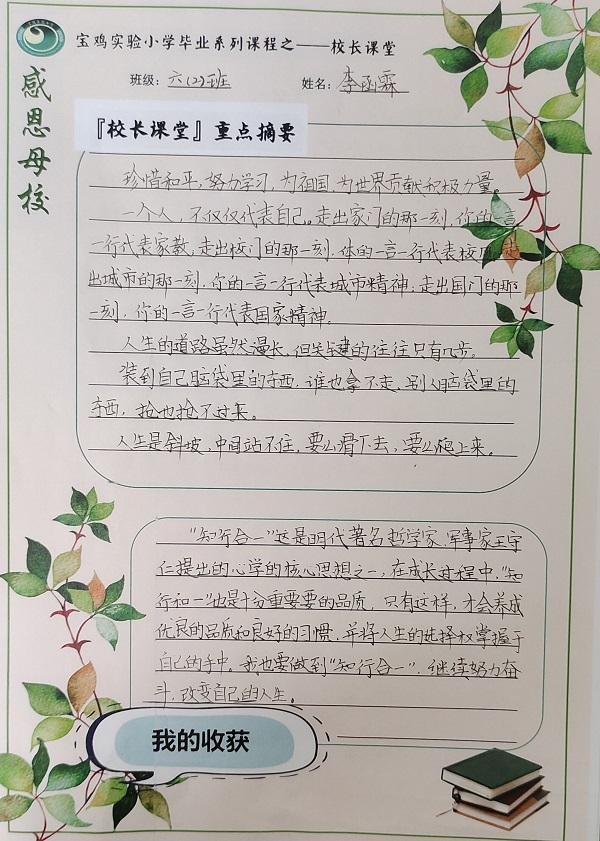 宝鸡实验小学毕业系列课程之——校长课堂
班级：六(2)班 姓名：李函霖
感恩母校
『校长课堂』重点摘要
珍惜和平，努力学习，为祖国，为世界贡献积极力量。
一个人，不仅仅代表自己。走出家门的那一刻，你的一言
一行代表家教，走出校门的那一刻，你的一言一行代表校
出城市的那一刻，你的一言一行代表城市精神；走出国门的那
一刻，你的一言一行代表国家精神。
人生的道路虽然漫长，但关键的往往只有几步。
装到自己脑袋里的东西，谁也拿不走，别人脑袋里的
东西，抢也抢不过来。
人生是斜坡，中间站不住，要么滑下去，要么爬上来。
“知行合一”这是明代著名哲学家、军事家王守
仁提出的心学的核心思想之一，在成长过程中，“知
行和一”也是十分重要要的品质，只有这样，才会养成
优良的品质和良好的习惯，并将人生的选择权掌握于
自己的手中。我也要做到“知行合一”，继续努力奋
斗，改变自己的人生。
我的收获